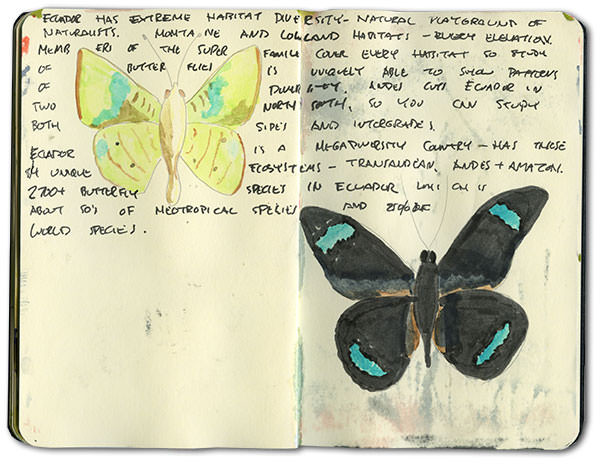 ECUADOR HAS EXTREME HABITAT DIVERSITY - NATURAL PLAYGROUND OF
NATURALISTS. MONTANE AND LOWLAND HABITATS - EVERY ELEVATION.
MEMBERS OF THE SUPER FAMILY COVER EVERY HABITAT SO STUDY
OF BUTTERFLIES IS UNIQUELY ABLE TO SHOW PATTERNS
OF DIVERSITY. ANDES CUTS ECUADOR IN
TWO NORTH SOUTH, SO YOU CAN STUDY
BOTH SIDES AND INTERGRADES.
ECUADOR IS A MEGADIVERSITY COUNTRY - HAS THOSE
UNIQUE ECOSYSTEMS - TRANSANDEAN, ANDES + AMAZON.
2700+ BUTTERFLY SPECIES IN ECUADOR WHICH IS
ABOUT 50% OF NEOTROPICAL SPECIES AND 25% OF
WORLD SPECIES.